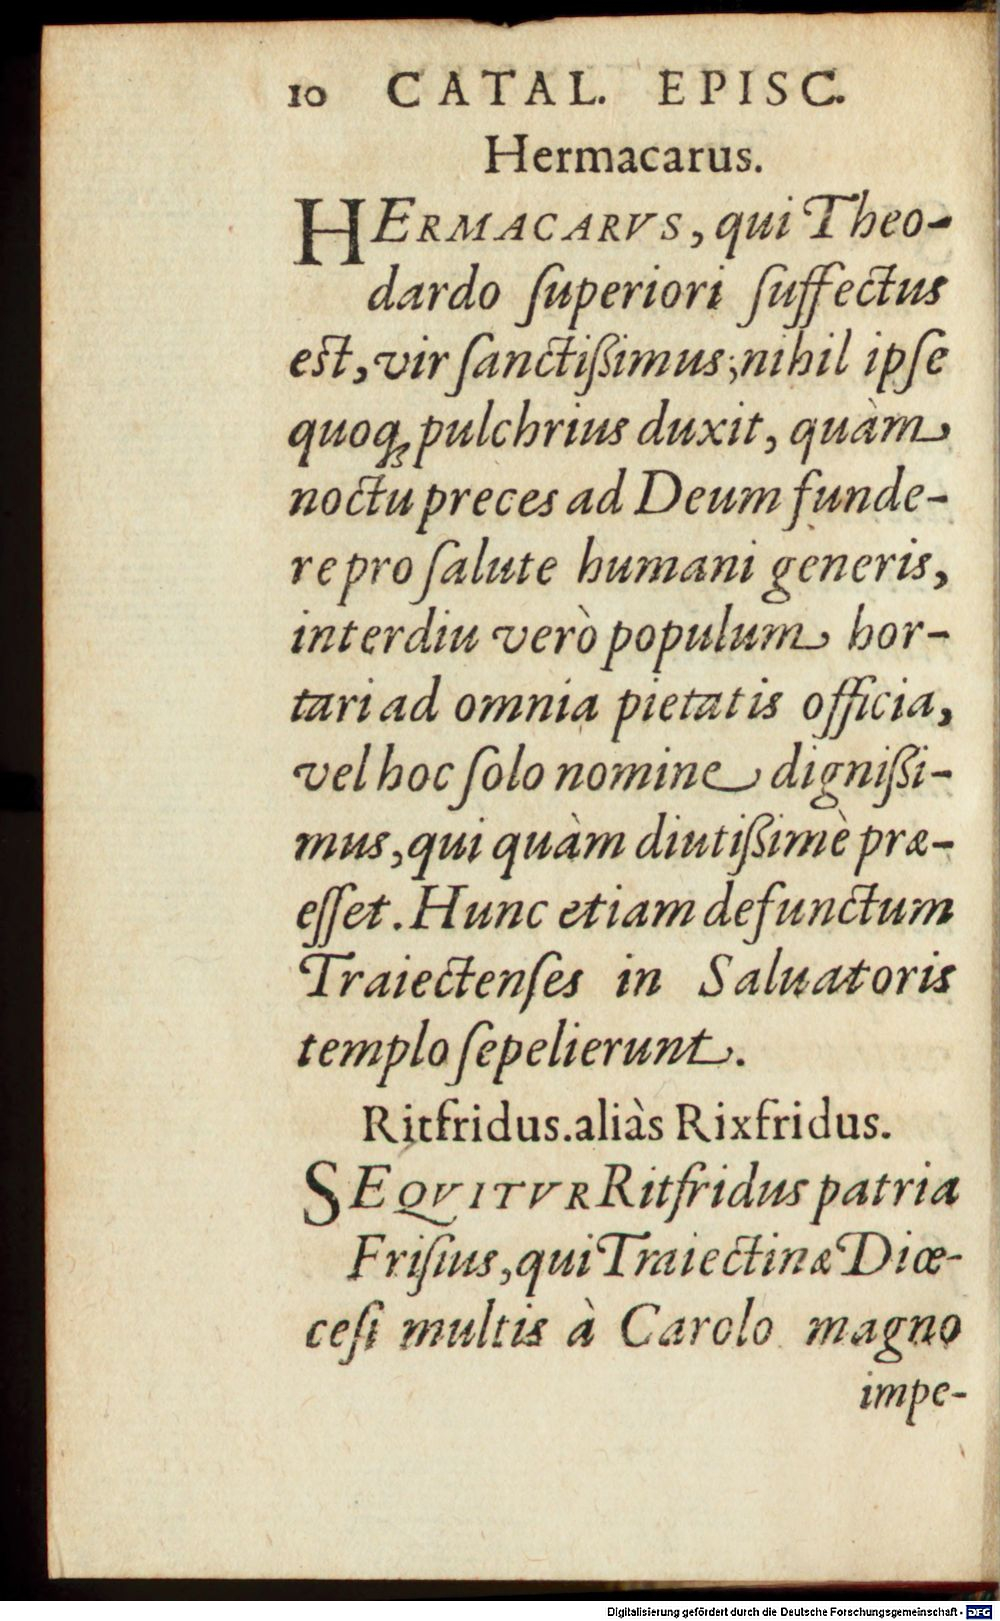 10 CATAL. EPISC.
Hermacarus.
HERMACARVS, qui Theo-
dardo ſuperiori ſuffectus
est, vir ſanctißimus; nihil ipſe
quoq; pulchrius duxit, quàm
noctu preces ad Deum funde-
re pro ſalute humani generis,
interdiu verò populum hor-
tari ad omnia pietatis officia,
vel hoc ſolo nomine dignißi-
mus, qui quàm diutißimè præ-
eſſet. Hunc etiam defunctum
Traiectenſes in Saluatoris
templo ſepelierunt.
Ritfridus. aliàs Rixfridus.
SEQVITVR Ritfridus patria
Friſius, qui Traiectinæ Diœ-
ceſi multis à Carolo magno
impe-
Digitalisierung gefördert durch die Deutsche Forschungsgemeinschaft - DFG